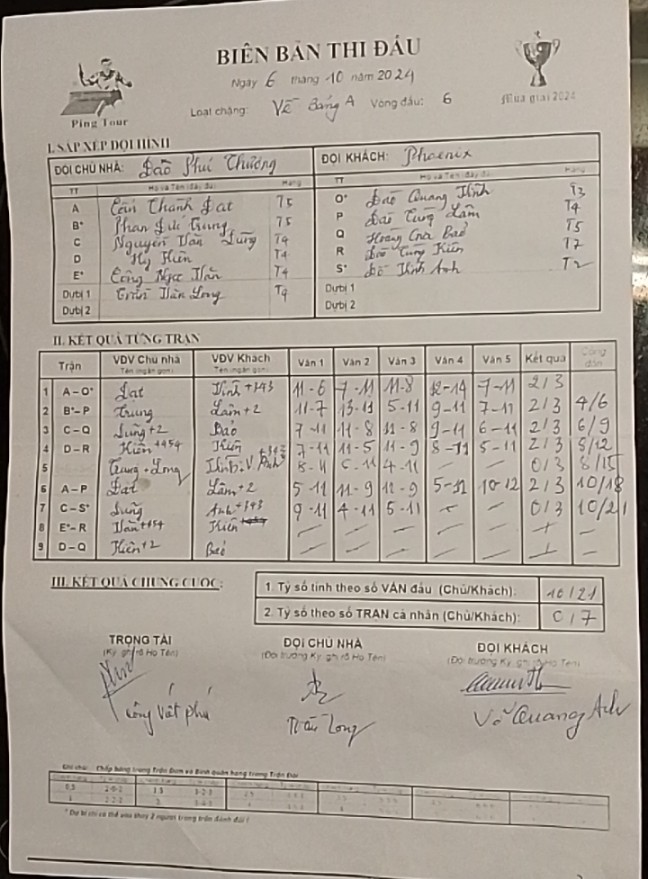 BIÊN BẢN THI ĐẤU
Ngày 6 tháng 10 năm 2024
Loại chặng: Về Bảng A Vòng đấu: 6
Ping Tour
Mùa giải 2024
I. SẮP XẾP ĐỘI HÌNH
ĐỘI CHỦ NHÀ: Đào Phú Thường ĐỘI KHÁCH: Phoenix
TT Họ và Tên (đầy đủ) Hạng TT Họ và Tên (đầy đủ) Hạng
A Thành Đạt T5 O* Đào Quang T3
B* Phan Đức Trung T5 P Đào Tùng Lâm T4
C Nguyễn Văn Dũng T4 Q Hoàng Gia Bảo T5
D Kỳ Hiên T4 R Tùng Kiên T7
E* Công Ngọc Văn T4 S* Anh T2
Dự bị 1 Trần Văn Long T4 Dự bị 1
Dự bị 2 Dự bị 2
II. KẾT QUẢ TỪNG TRẬN
Trận VĐV Chủ nhà VĐV Khách Ván 1 Ván 2 Ván 3 Ván 4 Ván 5 Kết quả Cộng dồn
Tên (ngắn gọn) Tên (ngắn gọn)
1 A – O* Đạt +343 11-6 7-11 11-8 12-14 7-11 2/3
2 B* – P Trung Lâm+2 11-7 13-11 5-11 9-11 7-11 2/3 4/6
3 C – Q Dũng+2 Bảo 7-11 11-8 11-8 9-11 6-11 2/3 6/9
4 D – R Hiên +454 Kiên 7-11 11-5 11-9 8-11 5-11 2/3 8/12
5 Trung + Long 8-11 6-11 4-11 – – 0/3 8/15
6 A – P Đạt Lâm+2 5-11 11-9 12-9 5-11 10-12 2/3 10/18
7 C – S* Dũng Anh+343 9-11 4-11 5-11 – – 0/3 10/21
8 E* – R Văn+454 Kiên – – – – – –
9 D – Q Hiên+2 Bảo – – – – – –
III. KẾT QUẢ CHUNG CUỘC:
1. Tỷ số tính theo số VÁN đấu (Chủ/Khách): 10/21
2. Tỷ số theo số TRẬN cá nhân (Chủ/Khách): 0/7
TRỌNG TÀI ĐỘI CHỦ NHÀ ĐỘI KHÁCH
(Ký, ghi rõ Họ Tên) (Đội trưởng Ký, ghi rõ Họ Tên) (Đội trưởng Ký, ghi rõ Họ Tên)
Trần Long Võ Quang Anh
Ghi chú: Chấp bóng trong Trận Đơn và Bình quân hạng trong Trận Đôi
* Dự bị chỉ có thể vào thay 2 người trong trận đánh đôi !